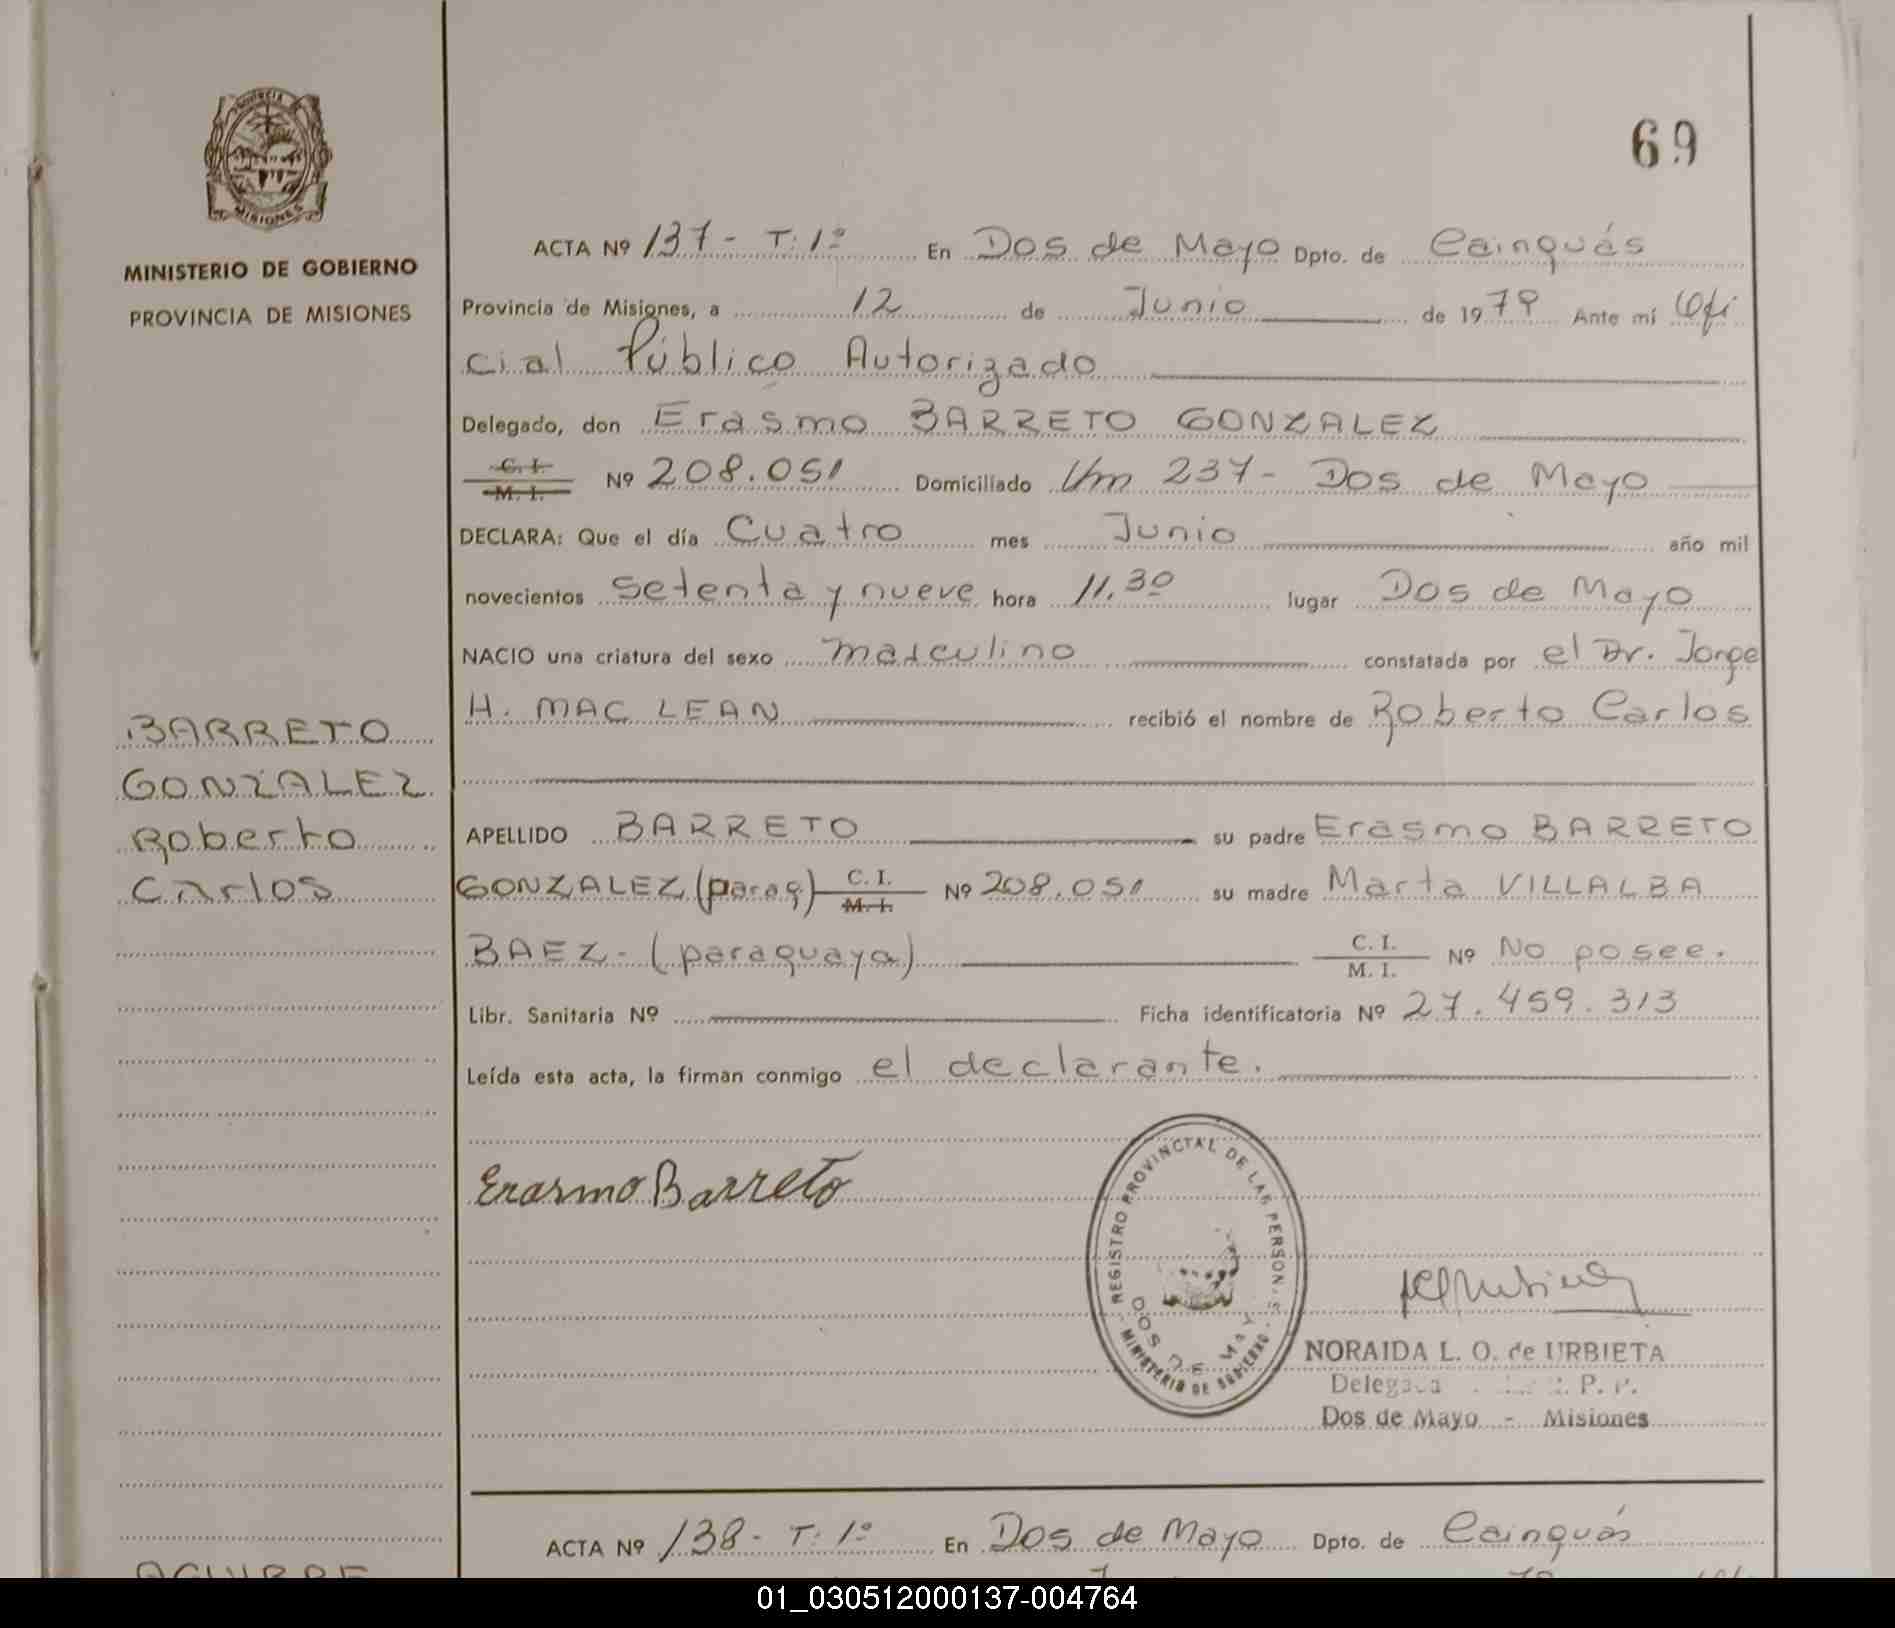 PROVINCIA
MISIONES
MINISTERIO DE GOBIERNO
PROVINCIA DE MISIONES
69
ACTA Nº 137 - T: 1º En Dos de Mayo Dpto. de Cainguás
Provincia de Misiones, a 12 de Junio de 1979 Ante mí Ofi
cial Público Autorizado
Delegado, don Erasmo BARRETO GONZALEZ
C. I. M. I. Nº 208.051 Domiciliado Km 237 - Dos de Mayo
DECLARA: Que el día Cuatro mes Junio año mil
novecientos setenta y nueve hora 11.30 lugar Dos de Mayo
NACIO una criatura del sexo masculino constatada por el Dr. Jorge
H. MAC LEAN recibió el nombre de Roberto Carlos
BARRETO
GONZALEZ
Roberto
Carlos
APELLIDO BARRETO su padre Erasmo BARRETO
GONZALEZ (parag) C. I. M. I. Nº 208.051 su madre Marta VILLALBA
BAEZ - (paraguaya) C. I. M. I. Nº No posee.
Libr. Sanitaria Nº Ficha identificatoria Nº 27.459.313
Leída esta acta, la firman conmigo el declarante.
Erasmo Barreto
REGISTRO PROVINCIAL DE LAS PERSONAS
DOS DE MAYO
MINISTERIO DE GOBIERNO
NORAIDA L. O. de URBIETA
Delegada P. P.
Dos de Mayo - Misiones
ACTA Nº 138 - T: 1º En Dos de Mayo Dpto. de Cainguás
AGUIRRE
01_030512000137-004764